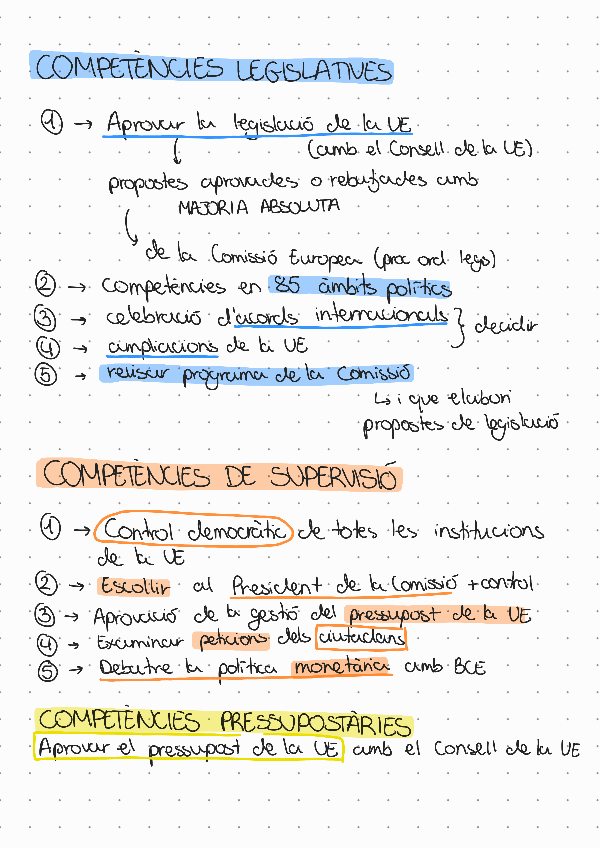 COMPETÈNCIES LEGISLATIVES
① → Aprovar la legislació de la UE
(amb el Consell de la UE)
propostes aprovades o rebutjades amb
MAJORIA ABSOLUTA
de la Comissió Europea (proc ord. legs)
② → competències en 85 àmbits polítics
③ → celebració d'acords internacionals
④ → ampliacions de la UE
} decidir
⑤ → revisar programa de la Comissió
↳ i que elabori
propostes de legislació
COMPETÈNCIES DE SUPERVISIÓ
① → Control democràtic de totes les institucions
de la UE
② → Escollir al President de la Comissió + control
③ → Aprovació de la gestió del pressupost de la UE
④ → Examinar peticions dels ciutadans
⑤ → Debatre la política monetària amb BCE
COMPETÈNCIES PRESSUPOSTÀRIES
Aprovar el pressupost de la UE amb el Consell de la UE